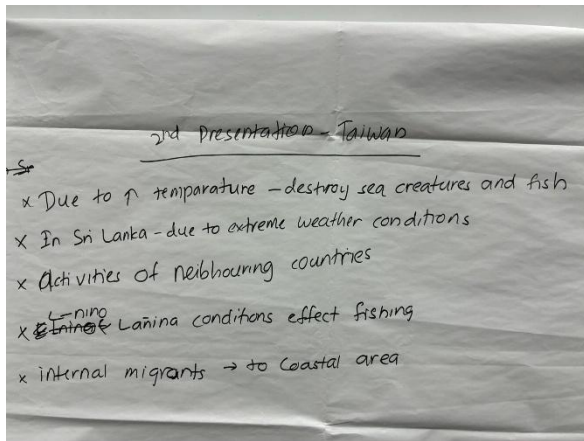 2nd Presentation - Taiwan
x Due to ↑ temparature - destroy sea creatures and fish
x In Sri Lanka - due to extreme weather conditions
x Activities of neibhouring countries
L-nino
x Lañina conditions effect fishing
x internal migrants → to Coastal area